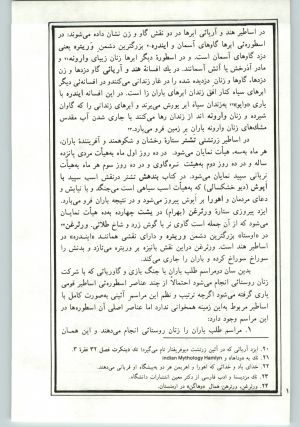 در اساطیر هند و آریائی ابرها در دو نقش گاو و زن نشان داده می‌شوند؛ در
اسطوره‌ئی ابرها گاوهای آسمان و ایندره،۲۰ بزرگترین دشمن وْریتره یعنی
دزد گاوهای آسمان است. و در اسطورهٔ دیگر ابرها زنان زیبای وارونه۲۱ و
مادر آذرخش یا آتش آسمانند. در یک افسانهٔ هند و آریائی گاو دزدها و زن
دزدها، گاوها و زنان دزدیده شده را در غار زندانی می‌کنند و در افسانه‌ئی دیگر
ابرهای سیاه کنار افق زندان ابرهای باران زا است. در این افسانه ایندره با
یاری «وایو»۲۲ به‌زندان سیاه ابر یورش می‌برند و ابرهای زندانی را که گاوان
شیرده و زنان وارونه اند از زندان رها می‌کنند با جاری شدن آب مقدس
مشک‌های زنان وارونه باران بر زمین فرو می‌بارد.
در اساطیر زرتشتی تشتر ستارهٔ رخشان و شکوهمند و آفرینندهٔ باران،
هر ماه به‌سه هیأت نمایان می‌شود. در ده روز اول ماه به‌هیأت مردی پانزده
ساله و در ده روز دوم به‌هیئت نره‌گاوی و در ده روز سوم هر ماه به‌هیأت
نریانی سپید نمایان می‌شود. در کتاب بندهش تشتر درنقش اسب سپید با
آپوش (دیو خشکسالی) که به‌هیأت اسب سیاهی است می‌جنگد و با نیایش و
دعای مردمان و اهورا بر آپوش پیروز می‌شود و در نتیجه باران فرو می‌بارد.
ایزد پیروزی ستارهٔ ورثرغن (بهرام) در یشت چهارده به‌ده هیأت نمایان
می‌شود که از آن جمله است گاوی نر با گوش زرد و شاخ طلائی. ورثرغن۲۳
در «اوستا» بزرگترین دشمن وریتره و دارای نقشی همانند «ایندره» در
اساطیر هند است. ورثرغن دراین نقش باابزر بر وریتره می‌تازد و بدنش را
سوراخ سوراخ کرده و باران را جاری می‌کند.
بدین سان درمراسم طلب باران یا جنگ بازی و گاوربائی که با شرکت
زنان روستائی انجام می‌شود احتمالاً از چند عناصر اسطوره‌ئی اساطیر قومی
یاری گرفته می‌شود اگرچه ترتیب و نظم این مراسم آئینی به‌صورت کامل با
اساطیر مربوط به‌این زمینه همخوانی ندارد اما عناصر اصلی آن اسطوره‌ها در
این مراسم وجود دارد:
۱. مراسم طلب باران را زنان روستائی انجام می‌دهند و این همان
۲۱. نک به دوداهاه و Indian Mythology Hamlyn
۲۲. خدای باد و خدائی که اهورا و اهریمن هر دو به‌پیشگاه او قربانی می‌دهند.
۲۳. نک مزدیسنا و ادب فارسی از دکتر معین انتشارات دانشگاه.